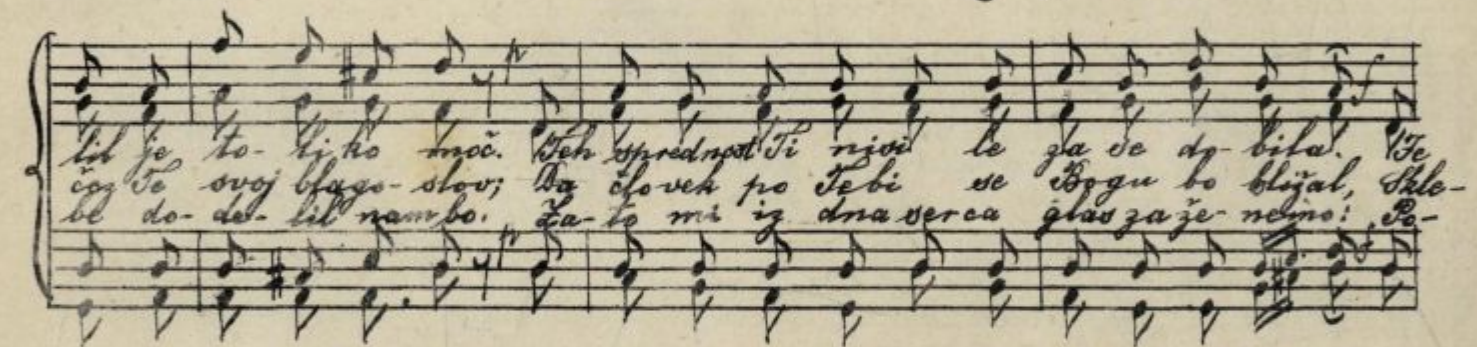 lil je to- liko moč. Teh sprednost Ti nisi le za se do- bila. Te
čoz Te svoj blago- slov; Da človek po Tebi se Bogu bo bližal, Skle-
be do- de- lil nam bo. Za- to mi iz dna serca glas za že- nemo: Po-